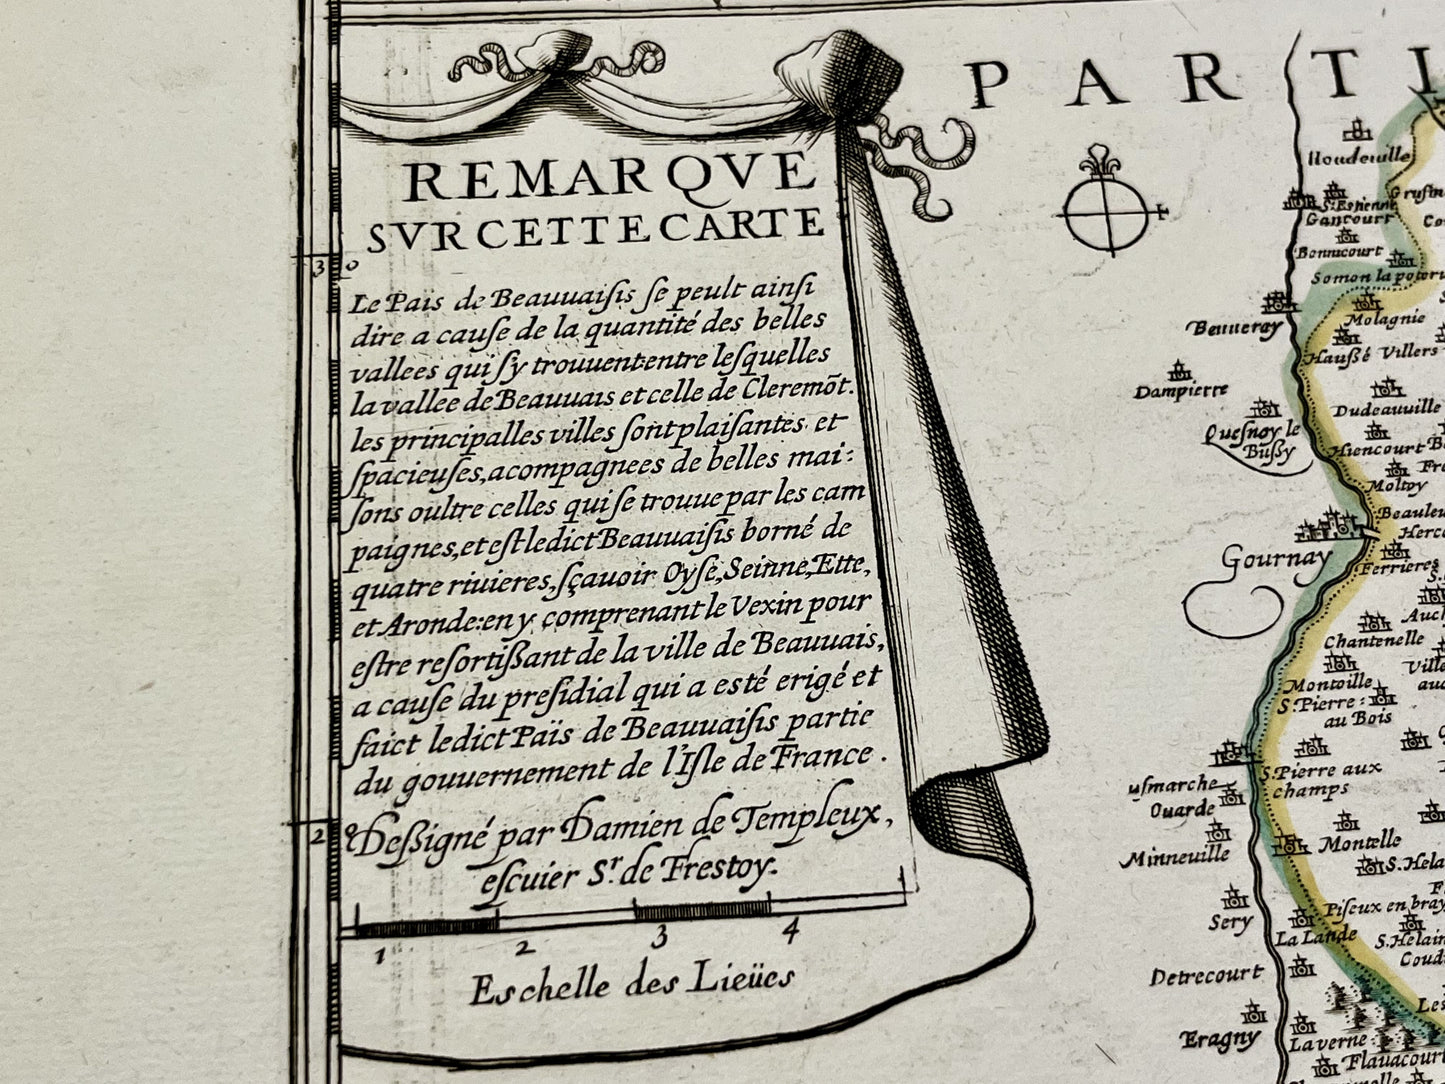 REMARQVE
SVR CETTE CARTE
Le Païs de Beauuaiſis ſe peult ainſi
dire a cauſe de la quantité des belles
vallees qui ſy trouuent entre leſquelles
la vallee de Beauuais et celle de Cleremõt.
les principalles villes ſont plaiſantes et
ſpacieuſes, acompagnees de belles mai:
ſons oultre celles qui ſe trouue par les cam
paignes, et eſt ledict Beauuaiſis borné de
quatre riuieres, ſçauoir Oyſe, Seinne, Ette,
et Aronde: en y comprenant le Vexin pour
eſtre reſortiſſant de la ville de Beauuais,
a cauſe du preſidial qui a esté erigé et
faict ledict Païs de Beauuaiſis partie
du gouuernement de l'Iſle de France.
Deſſigné par Damien de Templeux,
eſcuier Sr. de Frestoy.
1 2 3 4
Eschelle des Lieües
3
2
PARTI
Houdeuille
S. Estienne
Gancourt
Bonnicourt
Somon la poteri
Beuueray
Molagnie
Haußé Villers
Dampierre
Dudeauuille
Queſnoy le
Buſſy
Hiencourt
Moltoy
Beauleu
Gournay
Ferrieres
Auch
Chantenelle
Ville
Montoille
S. Pierre:
au Bois
S. Pierre aux
champs
uſmarche
Ouarde
Montelle
Minneuille
S. Hela
Piſeux en bray
Sery
La Lande
S. Helain
Coud
Detrecourt
Les
Eragny
Lauerne
Flauacourt